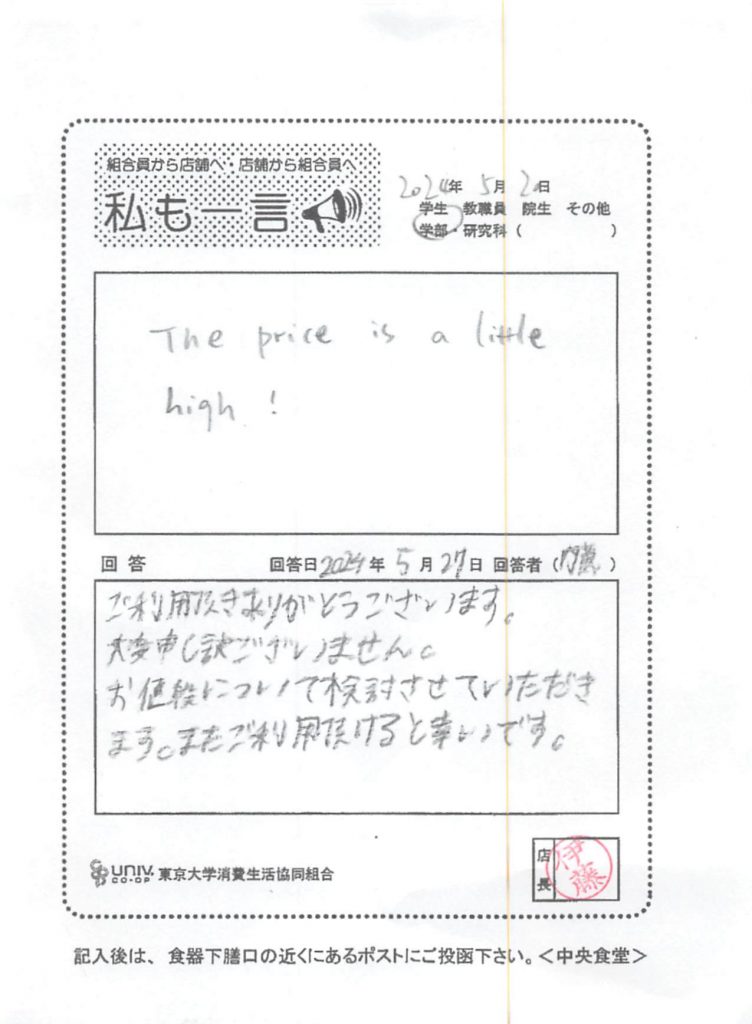 組合員から店舗へ・店舗から組合員へ
私も一言
2024年 5月 2日
学生 教職員 院生 その他
学部・研究科（ ）
The price is a little
high !
回答 回答日2024年 5月27日 回答者（内藤）
ご利用頂きありがとうございます。
大変申し訳ございません。
お値段について検討させていただき
ます。またご利用頂けると幸いです。
UNIV. CO-OP 東京大学消費生活協同組合
店長 伊藤
記入後は、食器下膳口の近くにあるポストにご投函下さい。＜中央食堂＞